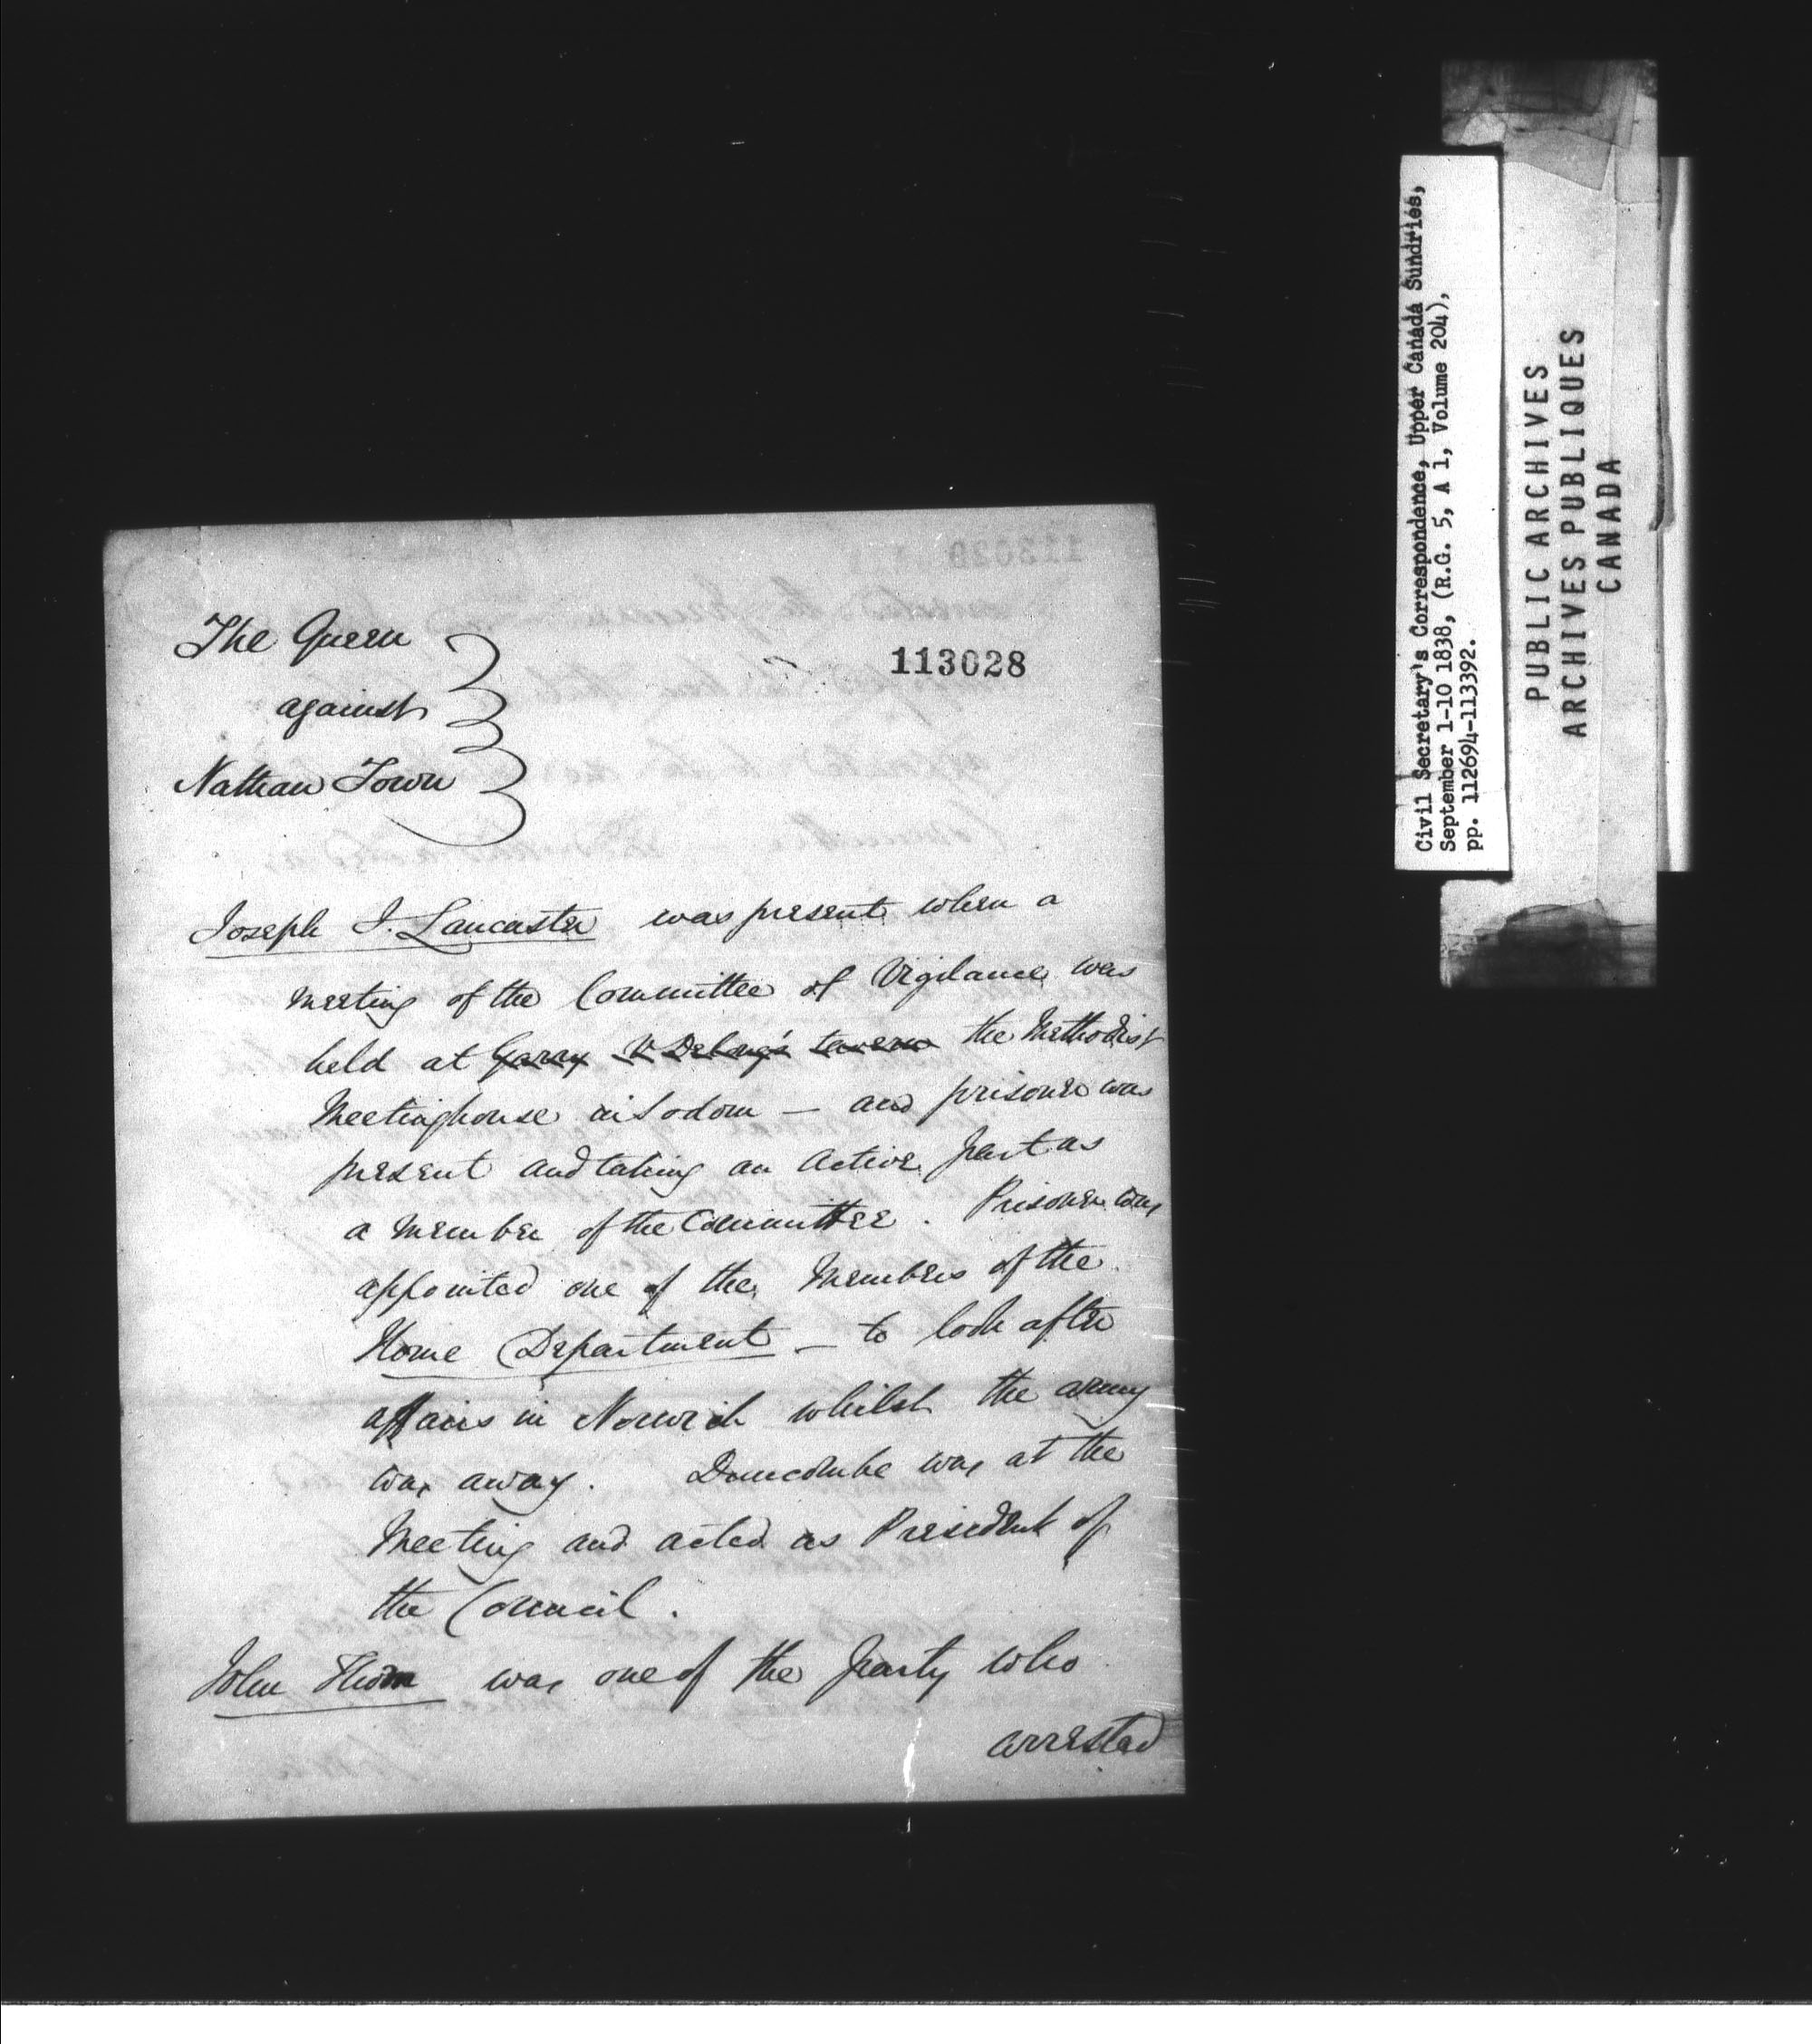 The Queen
113028
against
Nathan Town
Joseph J. Lancaster was present when a
meeting of the Committee of Vigilance was
held at Garry V Delong's tavern the Methodist
Meetinghouse in Sodom — and prisoner was
present and taking an active part as
a member of the Committee. Prisoner was
appointed one of the Members of the
Home Department — to look after
affairs in Norwich whilst the army
was away. Duncombe was at the
Meeting and acted as President of
the Council.
John Thom was one of the party who
arrested
Civil Secretary's Correspondence, Upper Canada Sundries,
September 1-10 1838, (R.G. 5, A 1, Volume 204),
pp. 112694-113392.
PUBLIC ARCHIVES
ARCHIVES PUBLIQUES
CANADA